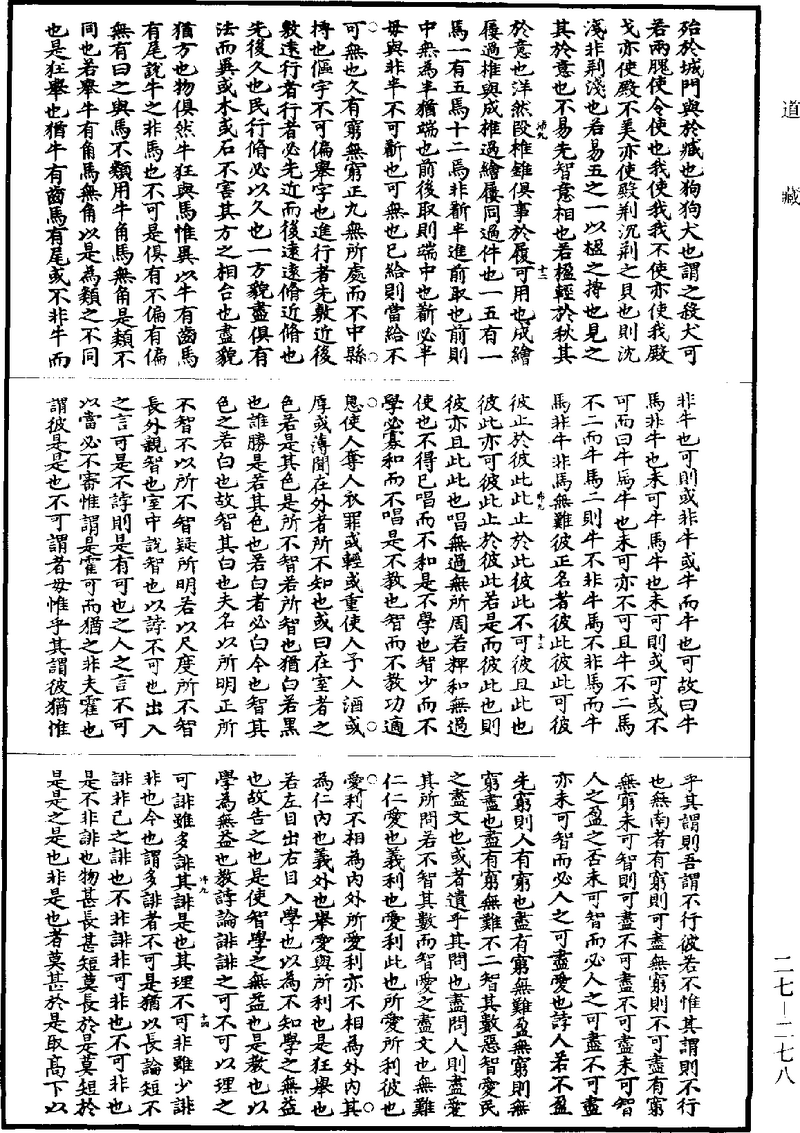 道藏
殆於城門與於臧也狗狗犬也謂之殺犬可
若兩使令使也我使我我不使亦使我殿
戈亦使殿不美亦使殿荆沉荆之貝也則沈
淺非荆淺也若易五之一以楹之摶也見之
其於意也不易先智意相也若楹輕於秋其
沸九　十二
於意也洋然段椎錐俱事於履可用也成繪
屨過椎與成椎過繪屨同過件也一五有一
馬一有五馬十二焉非斮半進前取也前則
中無為半猶端也前後取則端中也斮必半
毋與非半不可斮也可無也已給則當給不
可無也久有窮無窮正九無所處而不中縣
摶也傴宇不可偏舉字也進行者先敷近後
敷遠行者行者必先近而後遠遠脩近脩也
先後久也民行脩必以久也一方貌盡俱有
法而異或木或石不害其方之相台也盡貌
猶方也物俱然牛狂與馬惟異以牛有齒馬
有尾說牛之非馬也不可是俱有不偏有偏
無有曰之與馬不類用牛角馬無角是類不
同也若舉牛有角馬無角以是為類之不同
也是狂舉也猶牛有齒馬有尾或不非牛而
非牛也可則或非牛或牛而牛也可故曰牛
馬非牛也未可牛馬牛也未可則或可或不
可而曰牛馬牛也未可亦不可且牛不二馬
不二而牛馬二則牛不非牛馬不非馬而牛
馬非牛非馬無難彼正名者彼此彼此可彼
沸九　十三
彼止於彼此此止於此彼此不可彼且此也
彼此亦可彼此止於彼此若是而彼此也則
彼亦且此此也唱無過無所周若粺和無過
使也不得已唱而不和是不學也智少而不
學必寡和而不唱是不教也智而不教功適
息使人奪人衣罪或輕或重使人予人酒或
厚或薄聞在外者所不知也或曰在室者之
色若是其色是所不智若所智也猶白若黑
也誰勝是若其色也若白者必白今也智其
色之若白也故智其白也夫名以所明正所
不智不以所不智疑所明若以尺度所不智
長外親智也室中說智也以誖不可也出入
之言可是不誖則是有可也之人之言不可
以當必不審惟謂是霍可而猶之非夫霍也
謂彼是是也不可謂者毋惟乎其謂彼猶惟
乎其謂則吾謂不行彼若不惟其謂則不行
也無南者有窮則可盡無窮則不可盡有窮
無窮未可智則可盡不可盡不可盡未可智
人之盈之否未可智而必人之可盡不可盡
亦未可智而必人之可盡愛也誖人若不盈
先窮則人有窮也盡有窮無難盈無窮則無
窮盡也盡有窮無難不二智其數惡智愛民
之盡文也或者遺乎其問也盡問人則盡愛
其所問若不智其數而智愛之盡文也無難
仁仁愛也義利也愛利此也所愛所利彼也
愛利不相為內外所愛利亦不相為外內其
為仁內也義外也舉愛與所利也是狂舉也
若左目出右目入學也以為不知學之無益
也故告之也是使智學之無益也是教也以
學為無益也教誖論誹誹之可不可以理之
沸九　十四
可誹雖多誹其誹是也其理不可非雖少誹
非也今也謂多誹者不可是猶以長論短不
誹非己之誹也不非誹非可非也不可非也
是不非誹也物甚長甚短莫長於是莫短於
是是之是也非是也者莫甚於是取高下以
二七—二七八